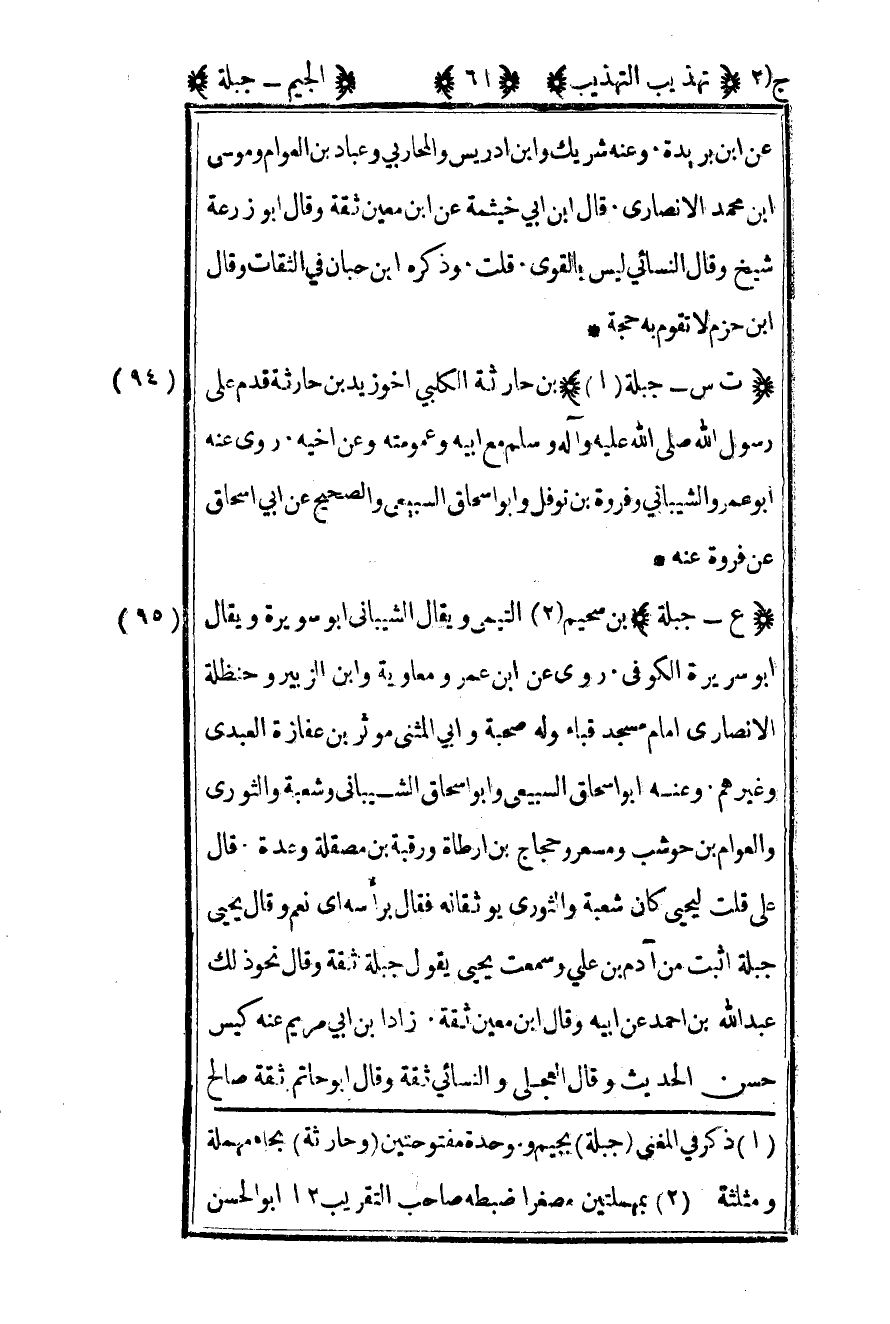 ج(٢) ﴿ تهذيب التهذيب ﴾ ﴿ ٦١ ﴾ ﴿ الجيم ـ جبلة ﴾
عن ابن بريدة · وعنه شريك وابن ادريس والمحاربي وعباد بن العوام وموسى
ابن محمد الانصارى · قال ابن ابي خيثمة عن ابن معين ثقة وقال ابو زرعة
شيخ وقال النسائي ليس بالقوى · قلت · وذكره ابن حبان في الثقات وقال
ابن حزم لا تقوم به حجة *
﴿ ت س ـ جبلة (١) ﴾ بن حارثة الكلبي اخو زيد بن حارثة قدم على (٩٤)
رسول الله صلى الله عليه وآله وسلم مع ابيه وعمومته وعن اخيه · روى عنه
ابو عمرو الشيباني وفروة بن نوفل وابو اسحاق السبيعى والصحيح عن ابي اسحاق
عن فروة عنه *
﴿ ع ـ جبلة ﴾ بن سحيم (٢) التيمى ويقال الشيبانى ابو سويرة ويقال (٩٥)
ابو سريرة الكوفى · روى عن ابن عمر و معاوية وابن الزبير و حنظلة
الانصارى امام مسجد قباء وله صحبة و ابي المثنى موثر بن عفازة العبدى
وغيرهم · وعنه ابو اسحاق السبيعى وابو اسحاق الشيبانى وشعبة والثورى
والعوام بن حوشب ومسعر وحجاج بن ارطاة ورقبة بن مصقلة وعدة · قال
على قلت ليحيى كان شعبة والثورى يوثقانه فقال برأسه اى نعم وقال يحيى
جبلة اثبت من آدم بن علي وسمعت يحيى يقول جبلة ثقة وقال نحو ذلك
عبدالله بن احمد عن ابيه وقال ابن معين ثقة · زاد ابن ابي مريم عنه كيس
حسن الحديث وقال العجلى و النسائي ثقة وقال ابو حاتم ثقة صالح
(١) ذكر في المغنى (جبلة) بجيم وموحدة مفتوحتين (وحارثة) بحاء مهملة
و مثلثة (٢) بمهملتين مصغرا ضبطه صاحب التقريب ١٢ ابو الحسن